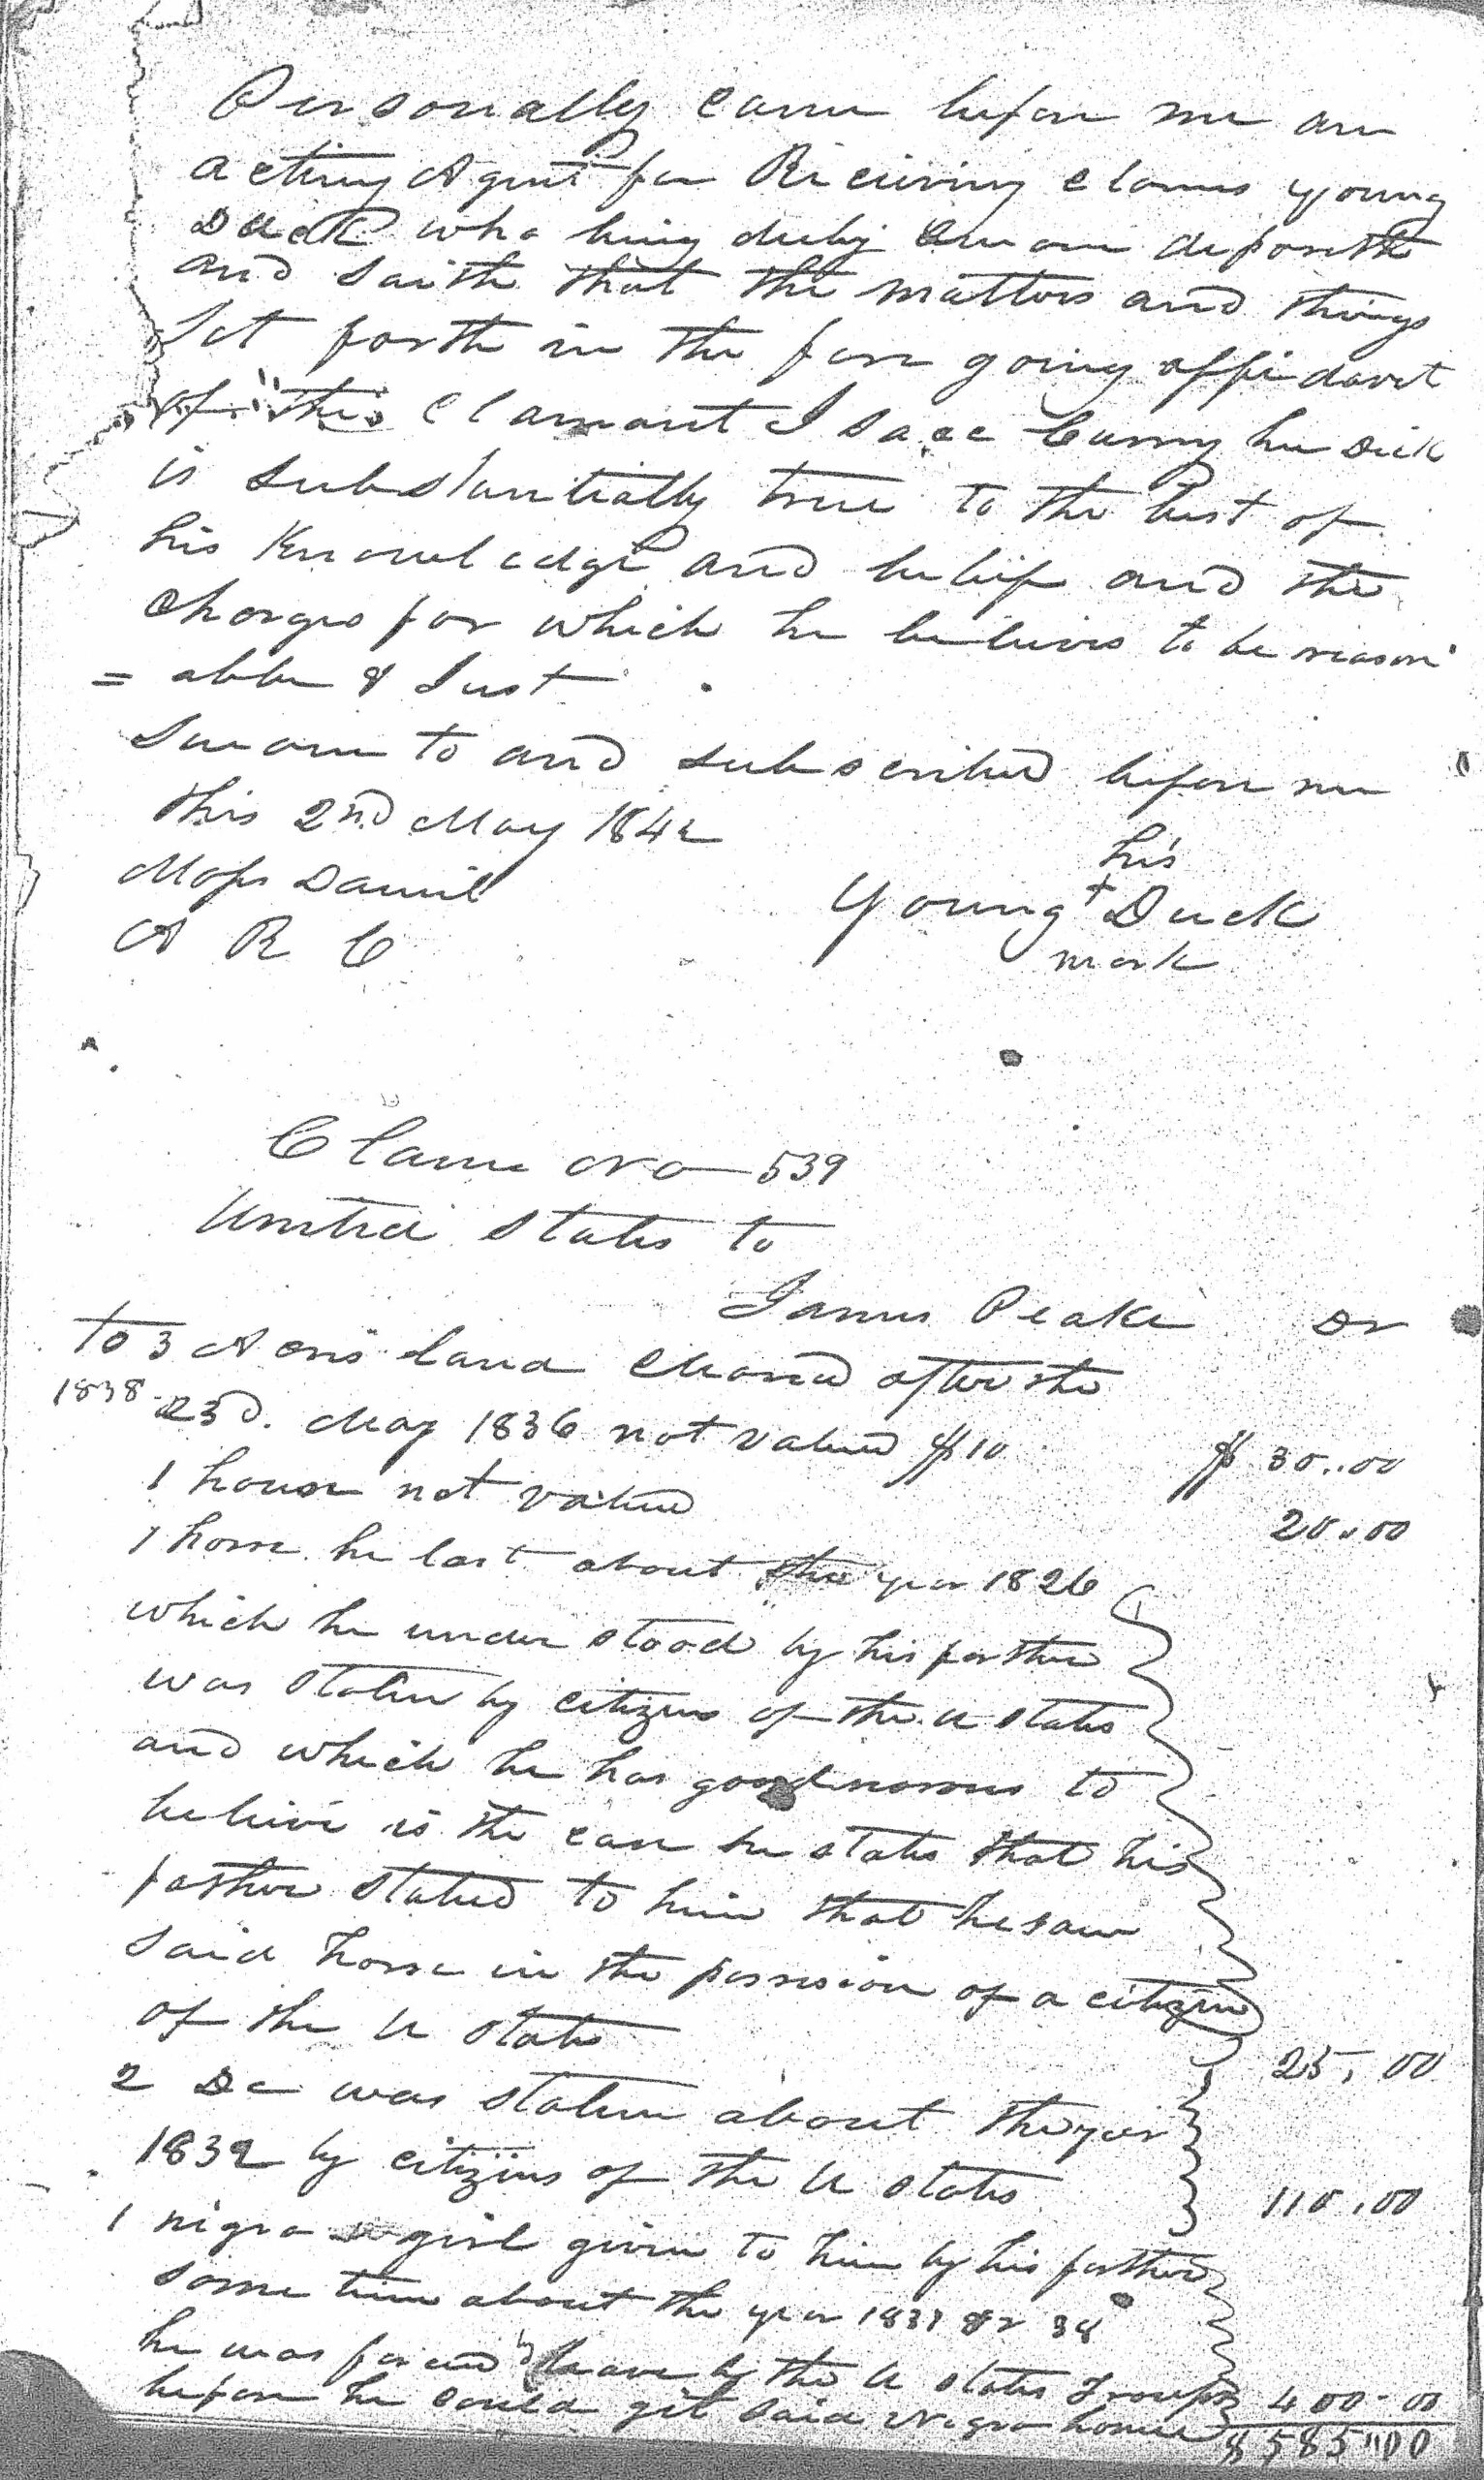 Personally came before me an
acting Agent for Receiving claims young
Duck who being duly sworn deposeth
and saith that the matters and things
Set forth in the fore going affidavit
of this Clamant Isaac
is substantially true to the best of
his Knowledge and belief and the
Charges for which he believes to be reason
= able & Just
Sworn to and subscribed before me
this 2nd May 1842
his
Moses Daniel Young + Duck
A R C mark
Claim No 539
United States to
James Peake Dr
to 3 Acres land cleared after the
1838 23d. May 1836 not valued $10 $ 30..00
1 house not valued 20.00
1 horse he lost about the year 1826
which he under stood by his father
was stolen by citizens of the U States
and which he has good reasons to
believe is the case he states that his
father stated to him that he saw
said horse in the possession of a citizen
of the U States 25,00
2 Do was stolen about the year
1832 by citizens of the U States 110.00
1 nigro girl given to him by his father
some time about the year 1837 or 38
he was forced to leave by the U States Troops 400.00
before he could git said Negro home $585"00